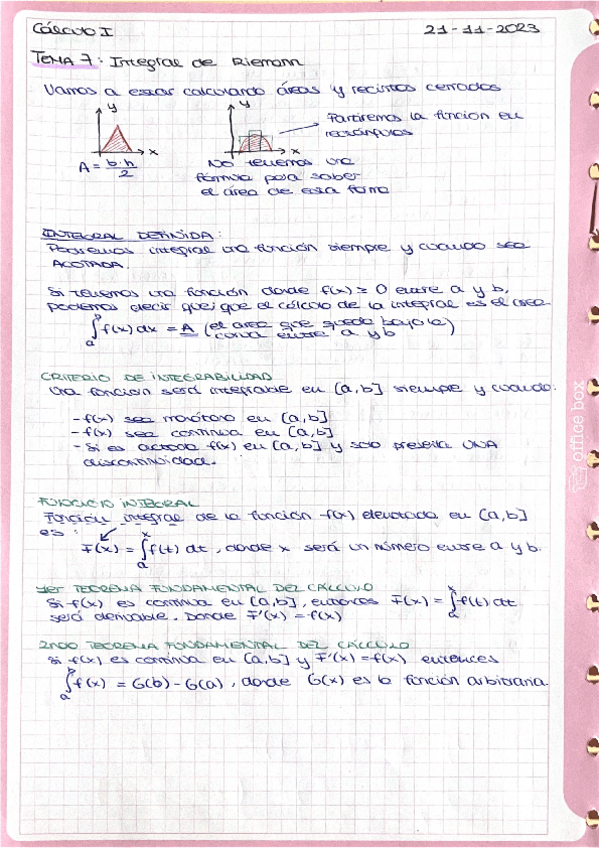 Cálculo I 21-11-2023
TEMA 7: Integral de Riemann
Vamos a estar calculando áreas y recintos cerrados
y y
Partiremos la función en
rectángulos
x x
A = b·h/2
No tenemos una
fórmula para saber
el área de esta forma
INTEGRAL DEFINIDA:
Podremos integral una función siempre y cuando sea
ACOTADA.
Si tenemos una función donde f(x) ≥ 0 entre a y b,
podemos decir que el cálculo de la integral es el área
∫ₐᵇ f(x) dx = A (el area que queda bajo la
curva entre a y b)
CRITERIO DE INTEGRABILIDAD
Una función será integrable en [a,b] siempre y cuando:
- f(x) sea monótona en [a,b]
- f(x) sea continua en [a,b]
- Si es acotada f(x) en [a,b] y solo presenta UNA
discontinuidad.
INTEGRAL
Función integral de la función f(x) en [a,b]
es:
F(x) = ∫ₐˣ f(t) dt, donde x será un número entre a y b.
1er TEOREMA FUNDAMENTAL DEL CÁLCULO
Si f(x) es continua en [a,b], entonces F(x) = ∫ₐˣ f(t) dt
será derivable. Donde F'(x) = f(x)
2ndo TEOREMA FUNDAMENTAL DEL CÁLCULO
Si f(x) es continua en [a,b] y F'(x) = f(x) entonces
∫ₐᵇ f(x) = G(b) - G(a), donde G(x) es la función arbitraria
office box